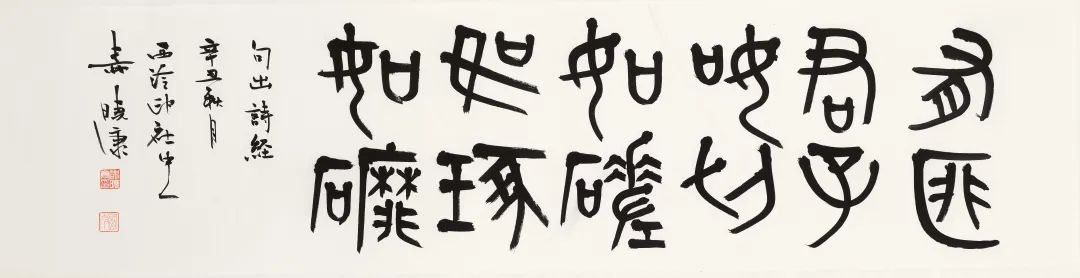 有匪
君子
如切
如磋
如琢
如磨
句出詩経
辛丑秋月
西泠印社中人